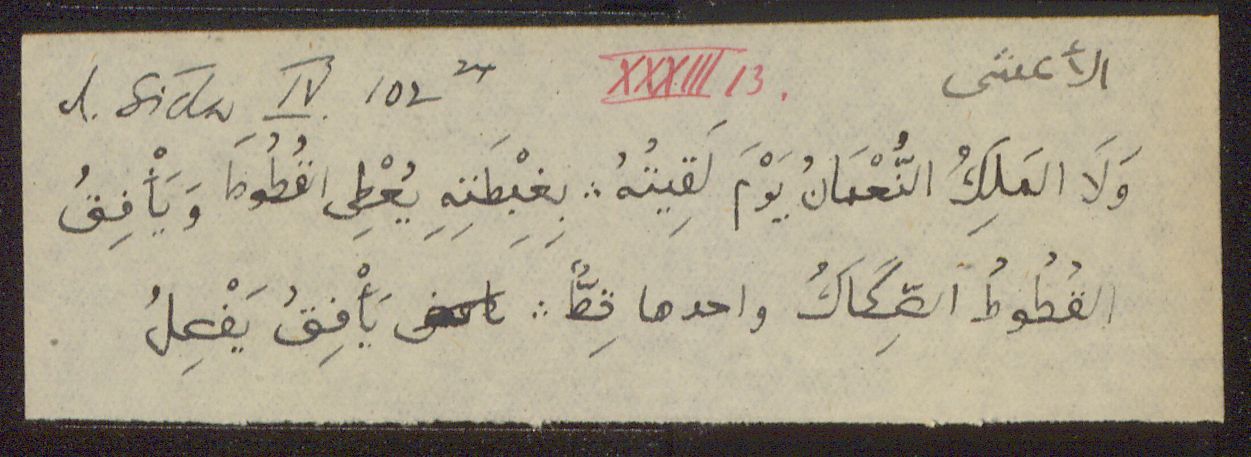 I. Sīda IV. 102 24 XXXIII 13. الأعشى
وَلَا المَلِكُ النُّعْمَانُ يَوْمَ لَقِيتُهُ ∴ بِغِبْطَتِهِ يُعْطِى القُطُوطَ وَيَأْفِقُ
القُطُوطُ الصِّكَاكُ واحدها قِطٌّ ∴ يَأْفِقُ يَفْعِلُ